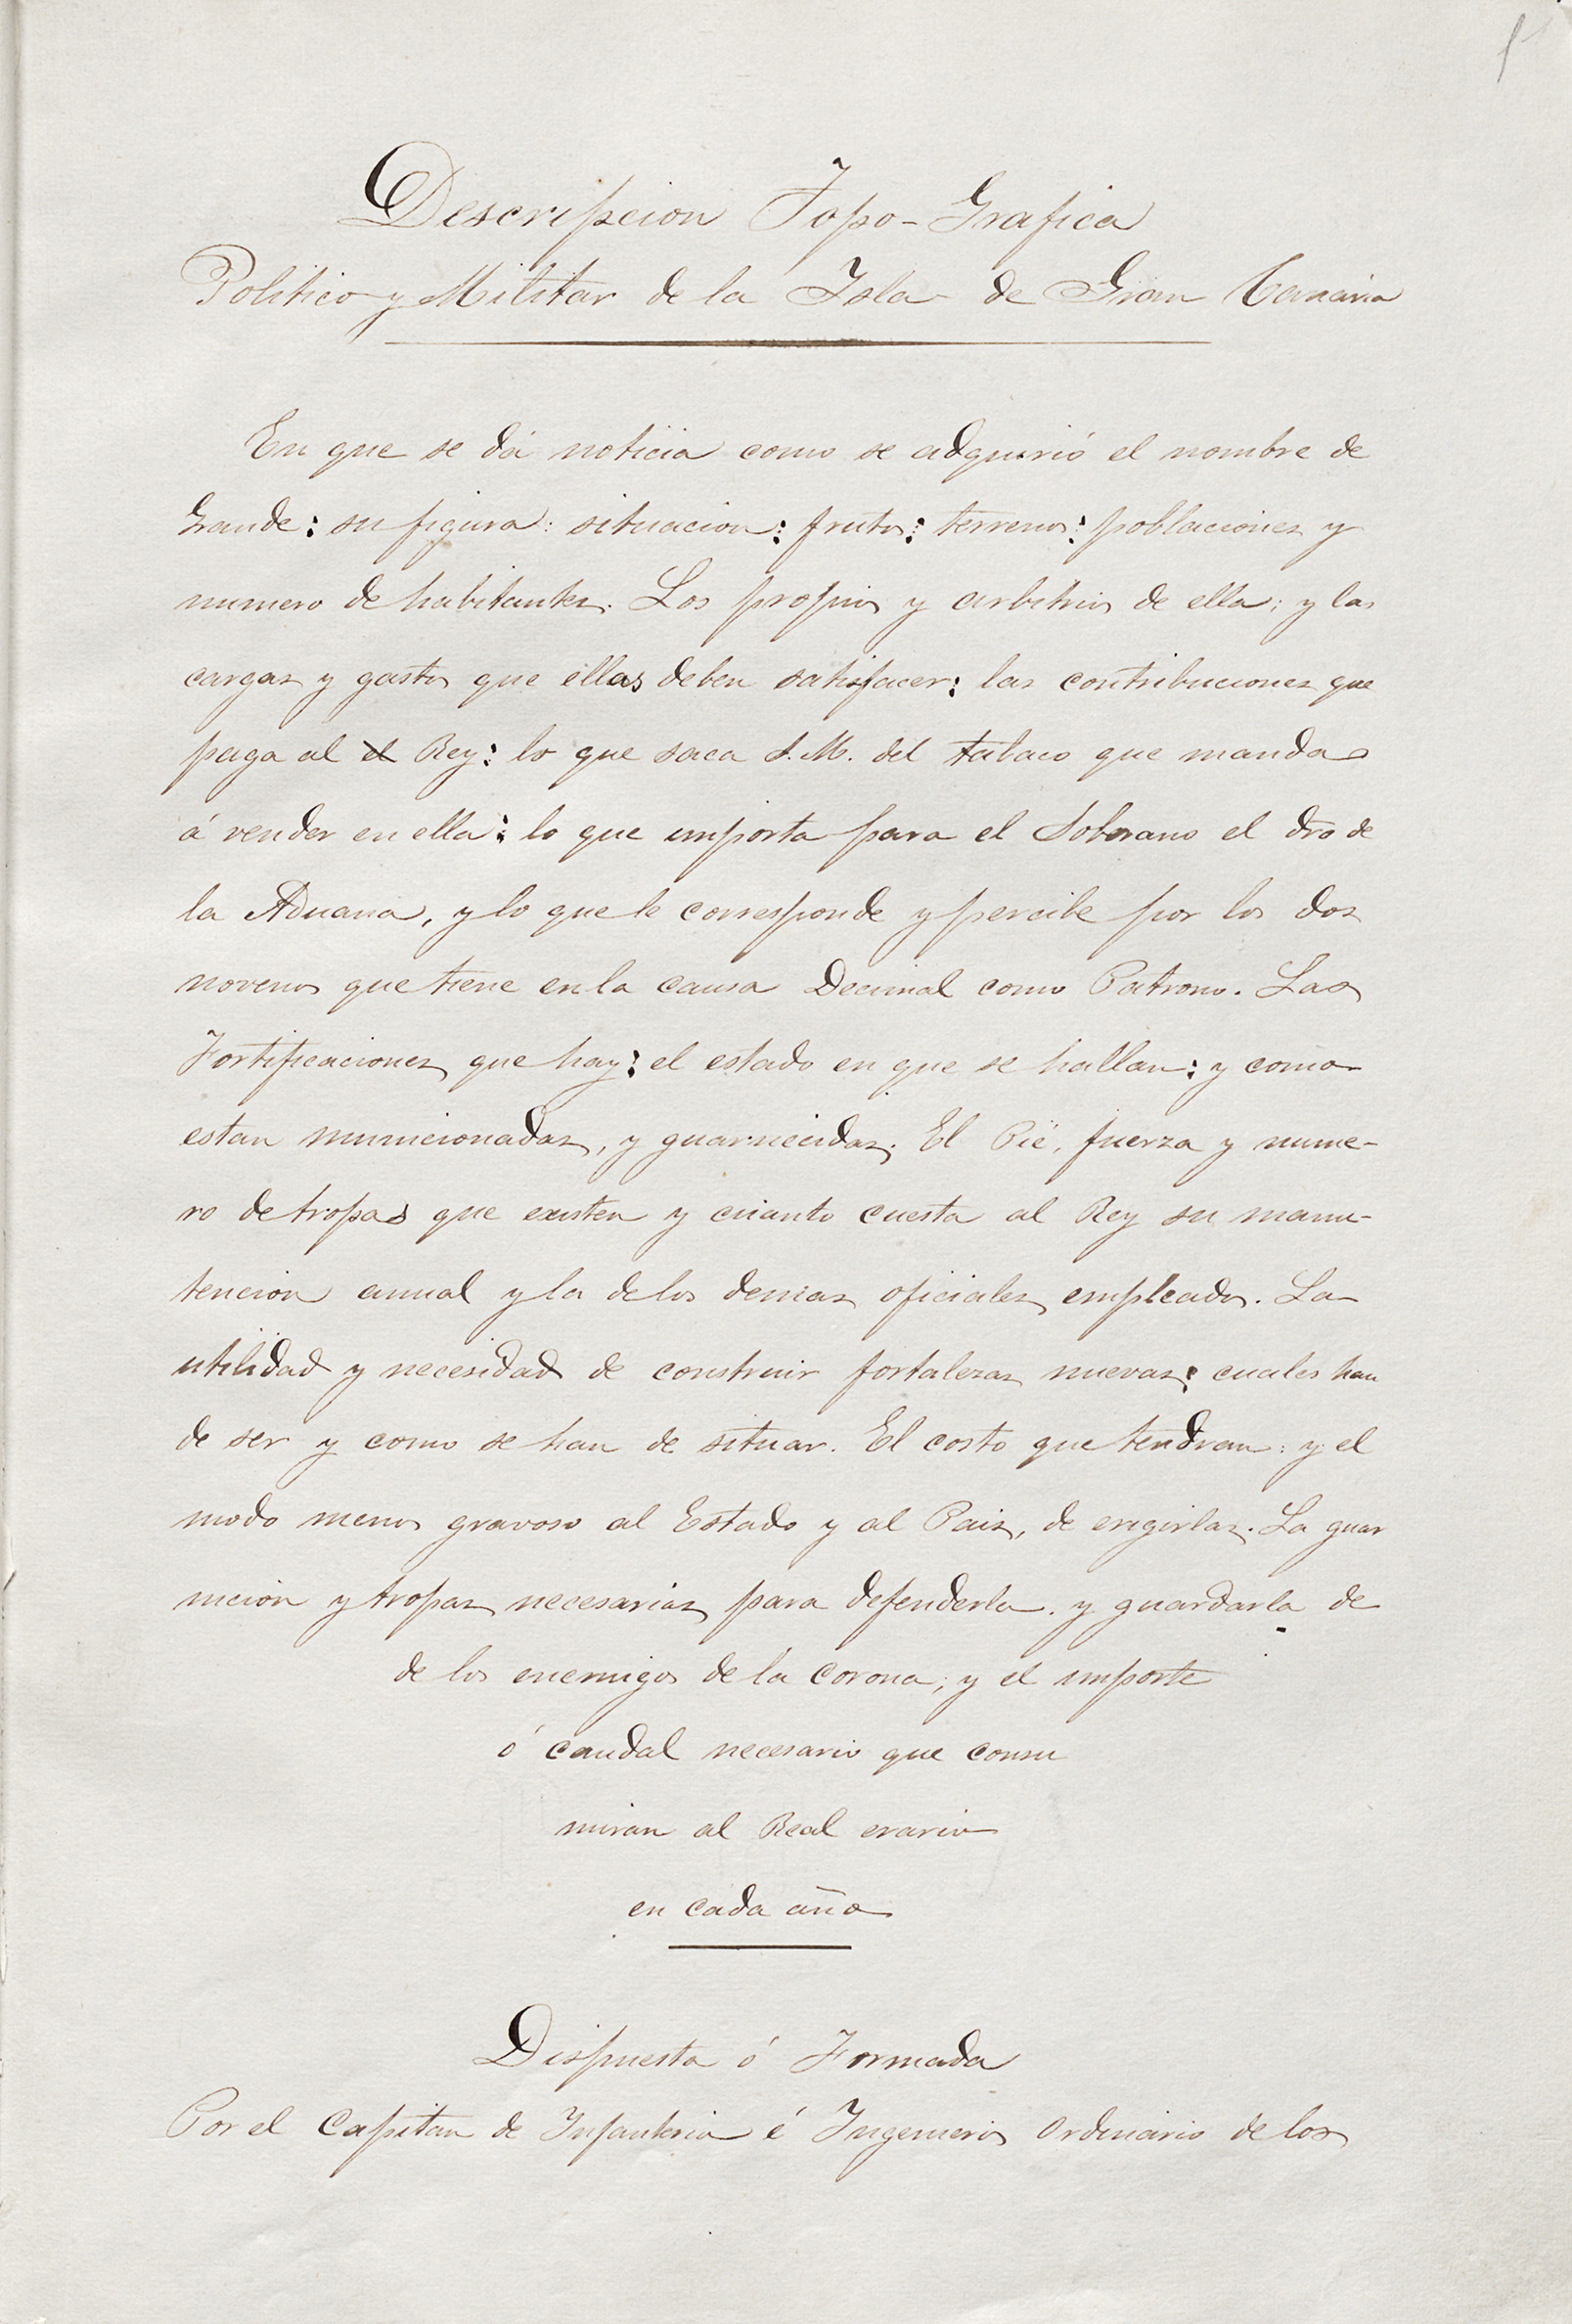 Descripcion Topo-Grafica
Politico y Militar de la Isla de Gran Canaria
En que se dá noticia como se adquirió el nombre de
Grande: su figura: situacion: frutos: terrenos: poblaciones y
numero de habitantes. Los propios y arbitrios de ella; y las
cargas y gastos que ellas deben satisfacer: las contribuciones que
paga al el Rey: lo que saca S.M. del tabaco que manda
á vender en ella: lo que importa para el Soberano el dro de
la Aduana, y lo que le corresponde y percibe por los dos
novenos que tiene en la causa Decimal como Patrono. Las
Fortificaciones que hay: el estado en que se hallan: y como
estan municionadas, y guarnecidas; El Pié, fuerza y nume-
ro de tropas que existen y cuanto cuesta al Rey su manu-
tencion anual y la de los demas oficiales empleados. La
utilidad y necesidad de construir fortalezas nuevas; cuales han
de ser y como se han de situar. El costo que tendran: y el
modo menos gravoso al Estado y al Pais, de erigirlas. La guar
nicion y tropas necesarias para defenderla. y guardarla de
de los enemigos de la corona; y el importe
ó caudal necesario que consu
miran al Real erario
en cada año
Dispuesta ó Formada
Por el Capitan de Infanteria é Ingeniero Ordinario de los